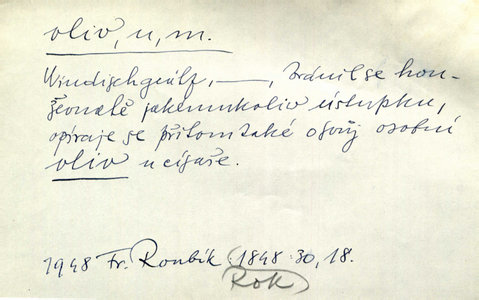 vliv, u, m.
Windischgrätz, —, bránil se hou-
ževnatě jakémukoliv ústupku,
opíraje se přitom také o svůj osobní
vliv u císaře.
1948 Fr. Roubík (1848: 30, 18.
Rok